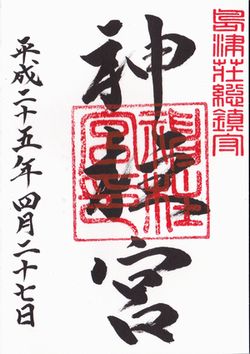 島津荘總鎮守
神柱宮
平成二十五年四月二十七日